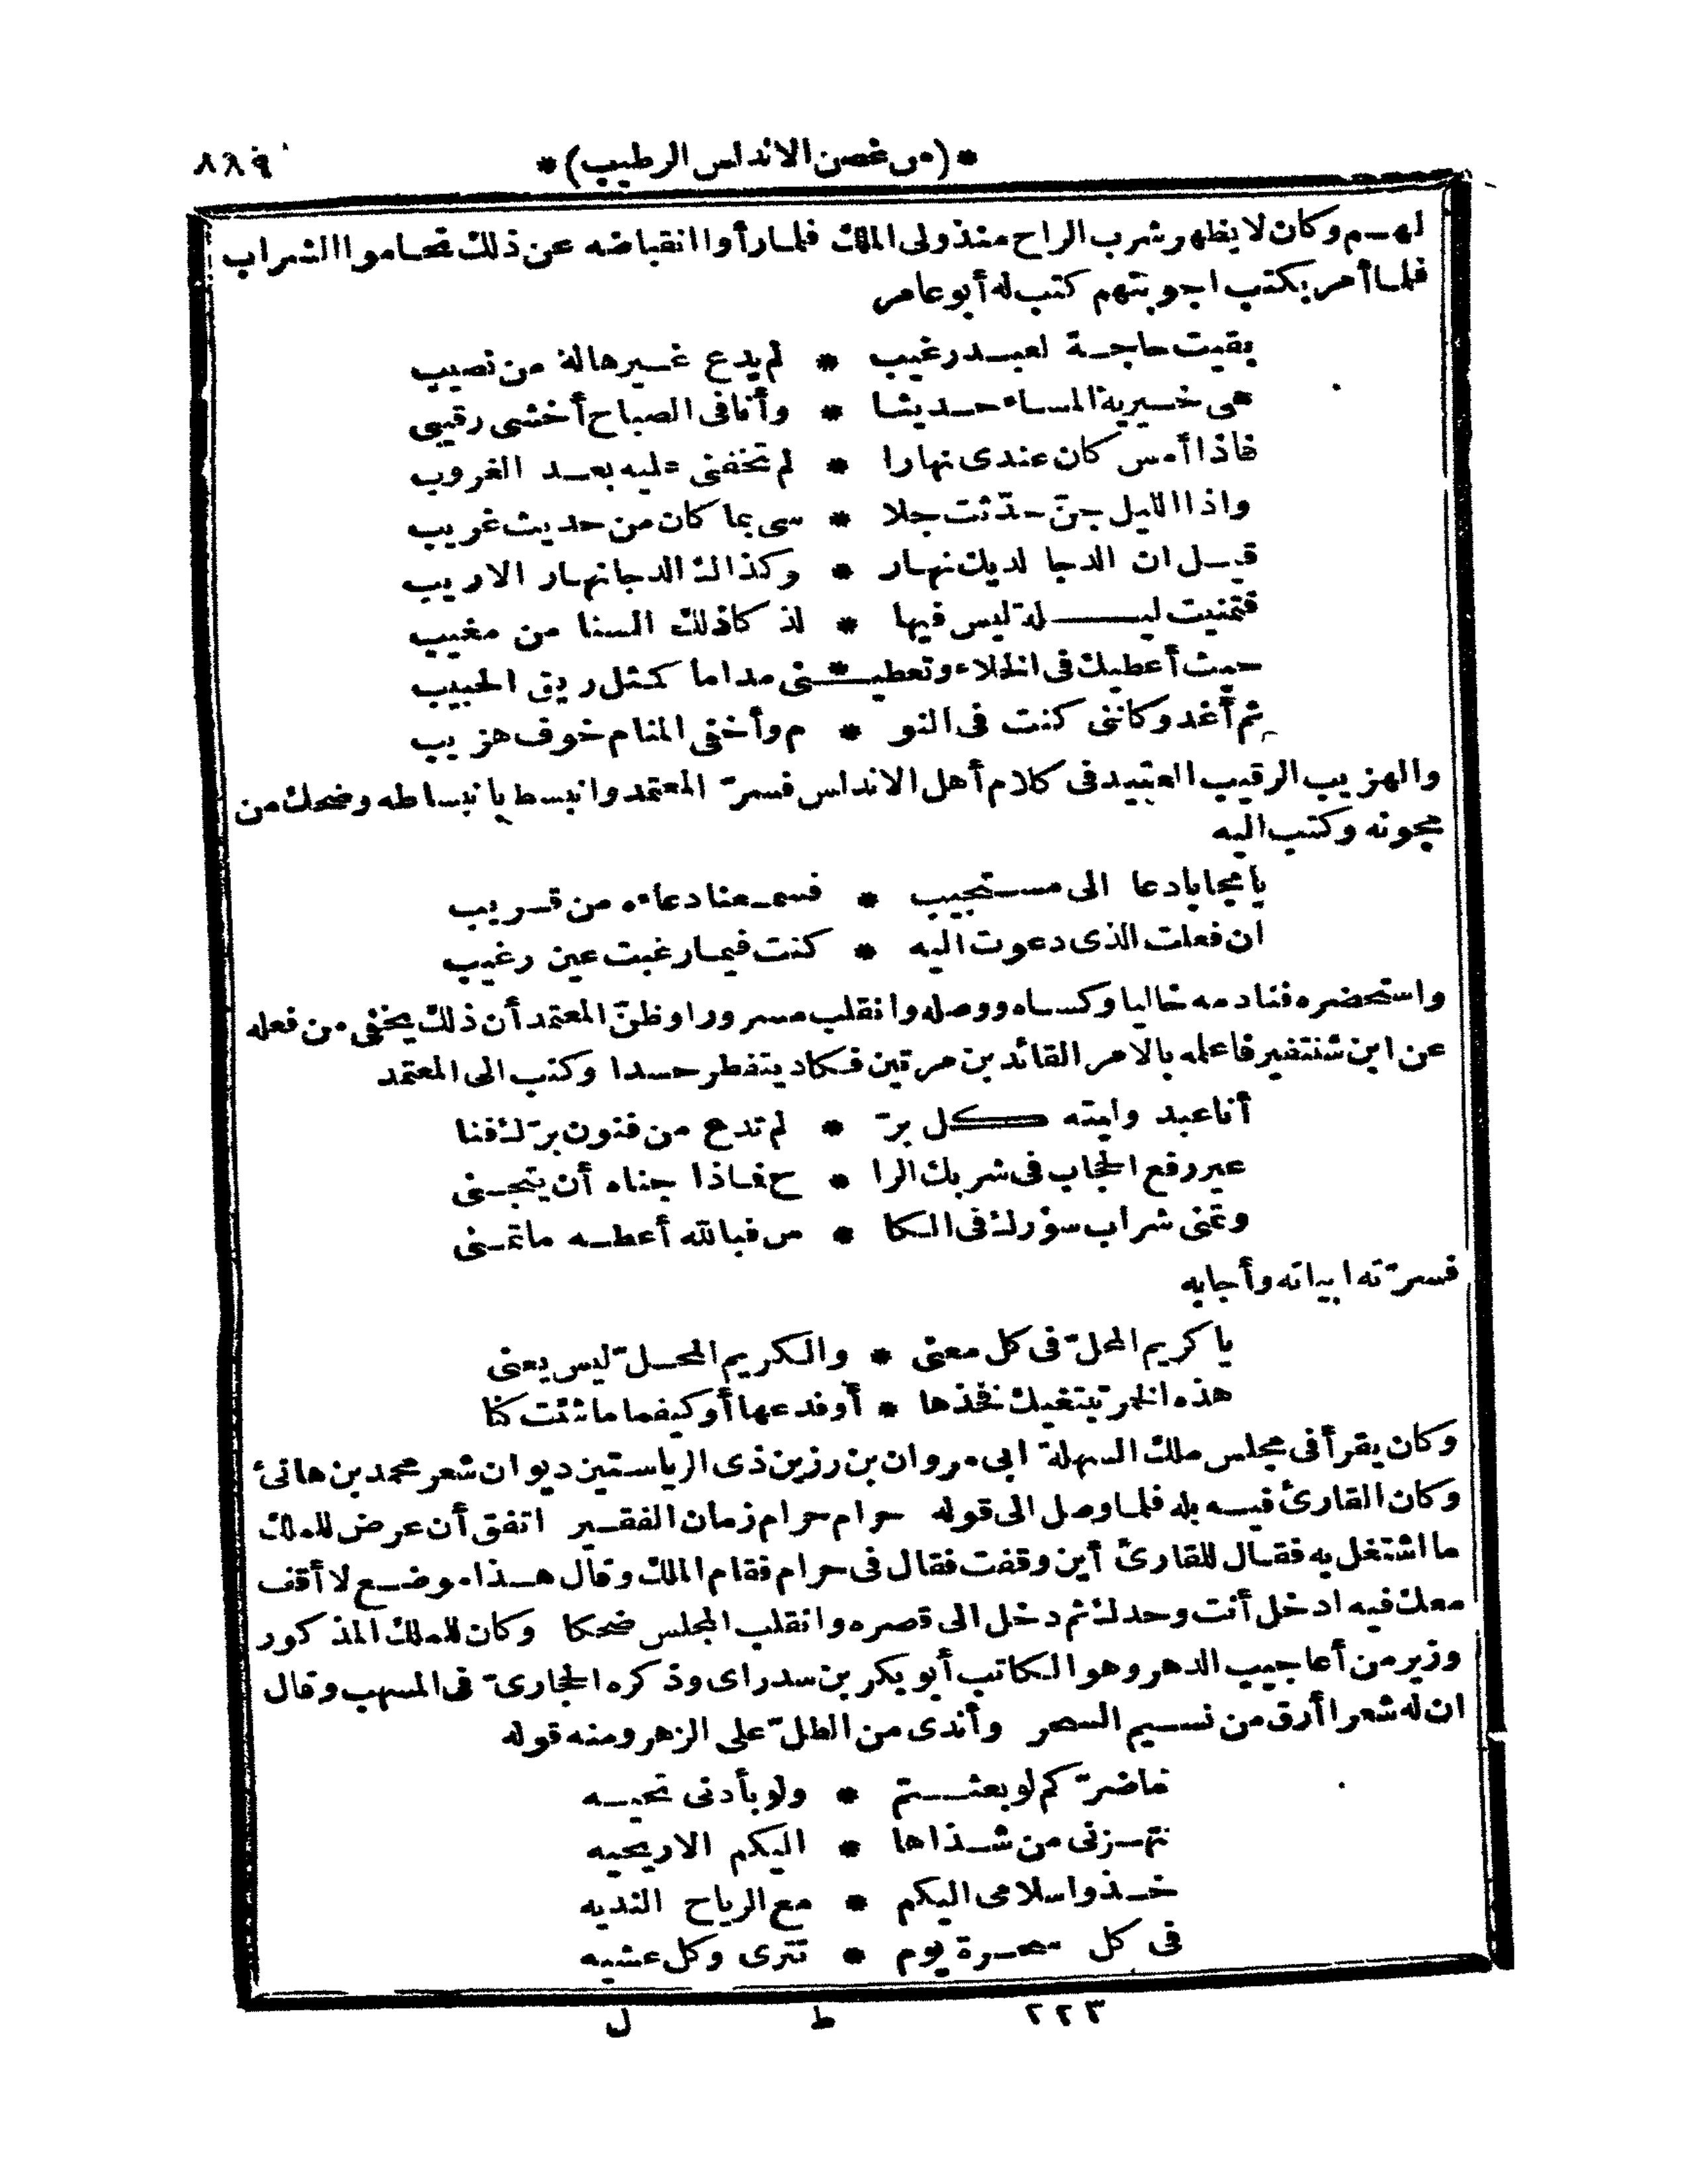 *(من غصن الاندلس الرطيب)* ٨٨٩
لهم وكان لا يظهر شرب الراح منذ ولى الملك فلما رأوا انقباضه عن ذلك تحاموا الشراب
فلما أمر بكتب اجوبتهم كتب له أبو عامر
بقيت حاجة لعبد رغيب * لم يدع غيرها له من نصيب
هى خيرية المساء حديثا * وأنا فى الصباح أخشى رقيبى
فاذا أمس كان عندى نهارا * لم تخفنى عليه بعد الغروب
واذا الليل جنّ حدّثت جلا * سى بما كان من حديث غريب
قيل ان الدجا لديك نهار * وكذاك الدجا نهار الاريب
فتمنيت ليلة ليس فيها * لذ كا ذلك السنا من مغيب
حيث أعطيك فى الخلاء وتعطيـ * ـنى مداما كمثل ريق الحبيب
ثم أغد وكاننى كنت فى النو * م وأخفى المنام خوف هزيب
والهزيب الرقيب العتيد فى كلام أهل الاندلس فسرّ المعتمد وانبسط بانبساطه وضحك من
مجونه وكتب اليه
يا مجابا دعا الى مستجيب * فسمعنا دعاءه من قريب
ان فعلت الذى دعوت اليه * كنت فيما رغبت عين رغيب
واستحضره فنادمه خاليا وكساه ووصله وانقلب مسرورا وظنّ المعتمد أن ذلك يخفى من فعله
عن ابن شنتفير فاعلمه بالامر القائد بن مرتين فكاد يتفطر حسدا وكتب الى المعتمد
أنا عبد وليته كل برّ * لم تدع من فنون برّك فنا
غير رفع الحجاب فى شربك الرا * ح فماذا جناه أن يتجنى
وتمنى شراب سؤرك فى الكا * س فبالله أعطه ما تمنى
فسرّته ابياته وأجابه
يا كريم المحلّ فى كل معنى * والكريم المحلّ ليس يعنى
هذه الخمر تبتغيك فخذها * أو فدعها أو كيفما ما شئت كنا
وكان يقرأ فى مجلس ملك السهلة ابى مروان بن رزين ذى الرياستين ديوان شعر محمد بن هانئ
وكان القارئ فيه بله فلما وصل الى قوله حرام حرام زمان الفقير اتفق أن عرض للملك
ما اشتغل به فقال للقارئ أين وقفت فقال فى حرام فقام الملك وقال هذا موضع لا أقف
معك فيه ادخل أنت وحدك ثم دخل الى قصره وانقلب المجلس ضحكا وكان للملك المذكور
وزير من أعاجيب الدهر وهو الكاتب أبو بكر بن سدراى وذكره الحجارىّ فى المسهب وقال
ان له شعرا أرق من نسيم السحر وأندى من الطلّ على الزهر ومنه قوله
ما ضرّكم لو بعثتم * ولو بأدنى تحيه
تهزنى من شذاها * اليكم الاريحيه
خذوا سلامى اليكم * مع الرياح النديه
فى كل سحرة يوم * تترى وكل عشيه
٢٢٣ ط ل